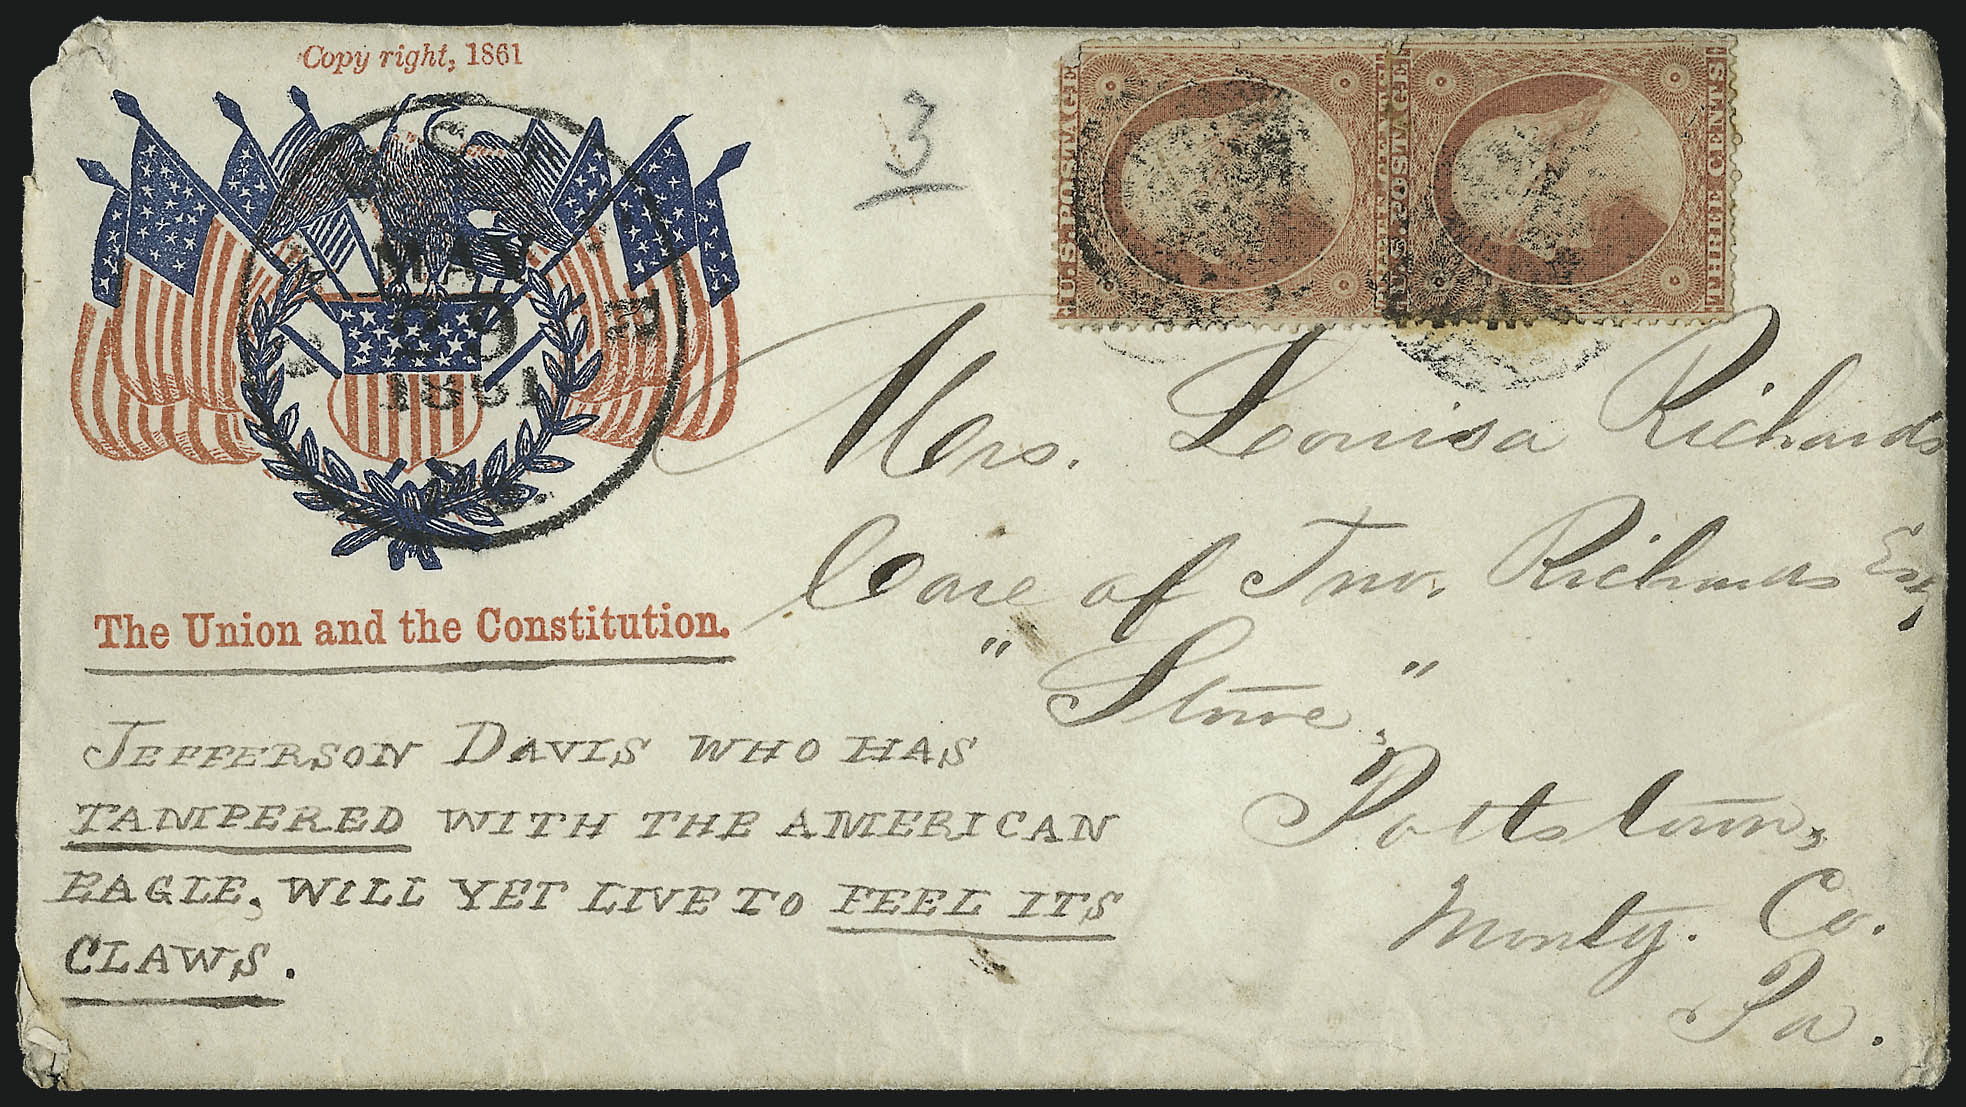 Copy right, 1861
3
U.S. POSTAGE THREE CENTS
U.S. POSTAGE THREE CENTS
MAY
29
1861
Mrs. Louisa Richards
Care of Jno. Richards Esq,
"Store",
Pottstown,
Monty. Co.
Pa.
The Union and the Constitution.
JEFFERSON DAVIS WHO HAS
TAMPERED WITH THE AMERICAN
EAGLE, WILL YET LIVE TO FEEL ITS
CLAWS.